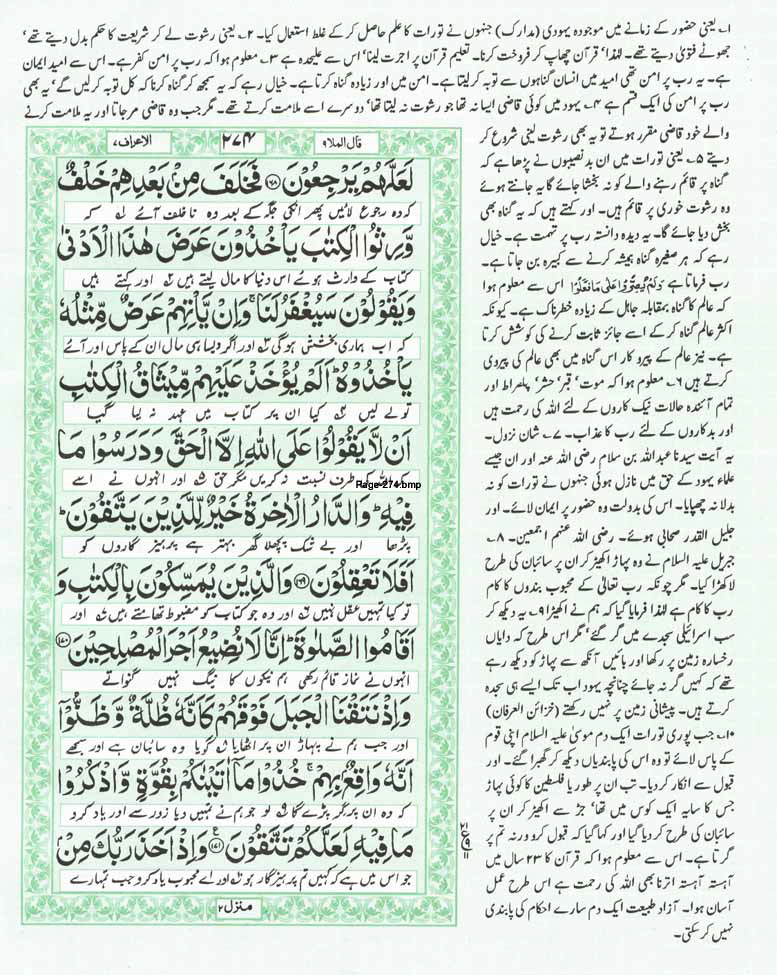 ۱۔ یعنی حضور کے زمانے میں موجودہ یہودی (مدارک) جنہوں نے تورات کا علم حاصل کر کے غلط استعمال کیا۔ ۲۔ یعنی رشوت لے کر شریعت کا حکم بدل دیتے تھے‘
جھوٹے فتویٰ دیتے تھے۔ لہٰذا‘ قرآن چھاپ کر فروخت کرنا۔ تعلیم قرآن پر اجرت لینا‘ اس سے علیحدہ ہے ۳۔ معلوم ہوا کہ رب پر امن کفر ہے۔ اس سے امید ایمان
ہے۔ یہ رب پر امن تھی امید میں انسان گناہوں سے توبہ کر لیتا ہے۔ امن میں اور زیادہ گناہ کرتا ہے۔ خیال رہے کہ یہ سمجھ کر گناہ کرنا کہ کل توبہ کر لیں گے‘ یہ بھی
رب پر امن کی ایک قسم ہے ۴۔ یہود میں کوئی قاضی ایسا نہ تھا جو رشوت نہ لیتا تھا‘ دوسرے اسے ملامت کرتے تھے۔ مگر جب وہ قاضی مر جاتا اور یہ ملامت کرنے
والے خود قاضی مقرر ہوتے تو یہ بھی رشوت لینی شروع کر
دیتے ۵۔ یعنی تورات میں ان بدنصیبوں نے پڑھا ہے کہ
گناہ پر قائم رہنے والے کو نہ بخشا جائے گا یہ جانتے ہوئے
وہ رشوت خوری پر قائم ہیں۔ اور کہتے ہیں کہ یہ گناہ بھی
بخش دیا جائے گا۔ یہ دیدہ دانستہ رب پر تہمت ہے۔ خیال
رہے کہ ہر صغیرہ گناہ ہمیشہ کرنے سے کبیرہ بن جاتا ہے۔
رب فرماتا ہے وَلَمْ يُصِرُّوْا عَلٰى مَا فَعَلُوْا اس سے معلوم ہوا
کہ عالم کا گناہ بمقابلہ جاہل کے زیادہ خطرناک ہے۔ کیونکہ
اکثر عالم گناہ کر کے اسے جائز ثابت کرنے کی کوشش کرتا
ہے۔ نیز عالم کے پیرو کار اس گناہ میں بھی عالم کی پیروی
کرتے ہیں ۶۔ معلوم ہوا کہ موت‘ قبر‘ حشر‘ پلصراط اور
تمام آئندہ حالات نیک کاروں کے لئے اللہ کی رحمت ہیں
اور بدکاروں کے لئے رب کا عذاب۔ ۷۔ شان نزول۔
یہ آیت سیدنا عبداللہ بن سلام رضی اللہ عنہ اور ان جیسے
علماء یہود کے حق میں نازل ہوئی جنہوں نے تورات کو نہ
بدلا نہ چھپایا۔ اس کی بدولت وہ حضور پر ایمان لائے۔ اور
جلیل القدر صحابی ہوئے۔ رضی اللہ عنہم اجمعین۔ ۸۔
جبریل علیہ السلام نے وہ پہاڑ اکھیڑ کر ان پر سائبان کی طرح
لا کھڑا کیا۔ مگر چونکہ رب تعالیٰ کے محبوب بندوں کا کام
رب کا کام ہے لہٰذا فرمایا گیا کہ ہم نے اکھیڑا ۹۔ یہ دیکھ کر
سب اسرائیلی سجدے میں گر گئے‘ مگر اس طرح کہ دایاں
رخسارہ زمین پر رکھا اور بائیں آنکھ سے پہاڑ کو دیکھ رہے
تھے کہ کہیں گر نہ جائے چنانچہ یہود اب تک ایسے ہی سجدہ
کرتے ہیں۔ پیشانی زمین پر نہیں رکھتے (خزائن العرفان)
۱۰۔ جب پوری تورات ایک دم موسیٰ علیہ السلام اپنی قوم
کے پاس لائے تو وہ اس کی پابندیاں دیکھ کر گھبرا گئے۔ اور
قبول سے انکار کر دیا۔ تب ان پر طور یا فلسطین کا کوئی پہاڑ
جس کا سایہ ایک کوس میں تھا‘ جڑ سے اکھیڑ کر ان پر
سائبان کی طرح کر دیا گیا اور کہا گیا کہ قبول کرو ورنہ تم پر
گرتا ہے۔ اس سے معلوم ہوا کہ قرآن کا ۲۳ سال میں
آہستہ آہستہ اترنا بھی اللہ کی رحمت ہے اس طرح عمل
آسان ہوا۔ آزاد طبیعت ایک دم سارے احکام کی پابندی
نہیں کر سکتی۔
قال الملا ۹
۲۷۴
الاعراف ۷
لَعَلَّهُمْ يَرْجِعُوْنَ ﴿۱۶۸﴾ فَخَلَفَ مِنْۢ بَعْدِهِمْ خَلْفٌ
کہ وہ رجوع لائیں پھر انکی جگہ کے بعد وہ ناخلف آئے ۱ کہ
وَّرِثُوا الْكِتٰبَ يَاْخُذُوْنَ عَرَضَ هٰذَا الْاَدْنٰى
کتاب کے وارث ہوئے اس دنیا کا مال لیتے ہیں ۲ اور کہتے ہیں
وَيَقُوْلُوْنَ سَيُغْفَرُ لَنَا ۚ وَاِنْ يَّاْتِهِمْ عَرَضٌ مِّثْلُهٗ
کہ اب ہماری بخشش ہوگی ۳ اور اگر ویسا ہی مال ان کے پاس اور آئے
يَاْخُذُوْهُ ؕ اَلَمْ يُؤْخَذْ عَلَيْهِمْ مِّيْثَاقُ الْكِتٰبِ
تو لے لیں ۴ کیا ان پر کتاب میں عہد نہ لیا گیا
اَنْ لَّا يَقُوْلُوْا عَلَى اللّٰهِ اِلَّا الْحَقَّ وَدَرَسُوْا مَا
کہ اللہ کی طرف نسبت نہ کریں مگر حق ۵ اور انہوں نے اسے
Rage-274.bmp
فِيْهِ ؕ وَالدَّارُ الْاٰخِرَةُ خَيْرٌ لِّلَّذِيْنَ يَتَّقُوْنَ ؕ
پڑھا اور بے شک پچھلا گھر بہتر ہے پرہیز گاروں کو
اَفَلَا تَعْقِلُوْنَ ﴿۱۶۹﴾ وَالَّذِيْنَ يُمَسِّكُوْنَ بِالْكِتٰبِ وَ
تو کیا تمہیں عقل نہیں ۶ اور وہ جو کتاب کو مضبوط تھامتے ہیں ۷ اور
اَقَامُوا الصَّلٰوةَ ؕ اِنَّا لَا نُضِيْعُ اَجْرَ الْمُصْلِحِيْنَ ﴿۱۷۰﴾
انہوں نے نماز قائم رکھی ہم نیکوں کا نیگ نہیں گنواتے
وَاِذْ نَتَقْنَا الْجَبَلَ فَوْقَهُمْ كَاَنَّهٗ ظُلَّةٌ وَّظَنُّوْۤا
اور جب ہم نے پہاڑ ان پر اٹھایا ۸ گویا وہ سائبان ہے اور سمجھے
اَنَّهٗ وَاقِعٌۢ بِهِمْ ۚ خُذُوْا مَاۤ اٰتَيْنٰكُمْ بِقُوَّةٍ وَّاذْكُرُوْا
کہ وہ ان پر گر پڑے گا ۹ لو جو ہم نے تمہیں دیا زور سے اور یاد کرو
مَا فِيْهِ لَعَلَّكُمْ تَتَّقُوْنَ ﴿۱۷۱﴾ وَاِذْ اَخَذَ رَبُّكَ مِنْۢ
جو اس میں ہے کہ کہیں تم پرہیز گار ہو ۱۰ اور اے محبوب یاد کرو جب تمہارے
منزل ۲